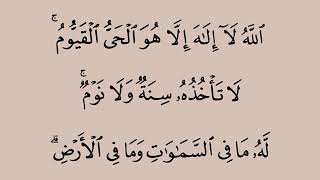 ٱللَّهُ لَآ إِلَـٰهَ إِلَّا هُوَ ٱلْحَىُّ ٱلْقَيُّومُ ۚ
لَا تَأْخُذُهُۥ سِنَةٌۭ وَلَا نَوْمٌۭ ۚ
لَّهُۥ مَا فِى ٱلسَّمَـٰوَٰتِ وَمَا فِى ٱلْأَرْضِ ۗ